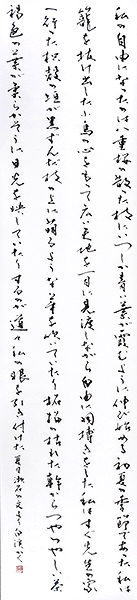 私の自由になつたのは八重桜の散つた枝にいつしか青い葉が霞むように伸び始める初夏の季節であつた私は
籠を抜け出した小鳥の心をもつて広い天地を一目に見渡しながら自由に羽搏きをした私はすぐ先生の家
へ行つた枳殻の垣が黒ずんだ枝の上に萌るような芽を吹いていたり柘榴の枯れた幹からつやつやしい茶
褐色の葉が柔らかそうに日光を映していたりするのが道々私の眼を引き付けた 夏目漱石の文より